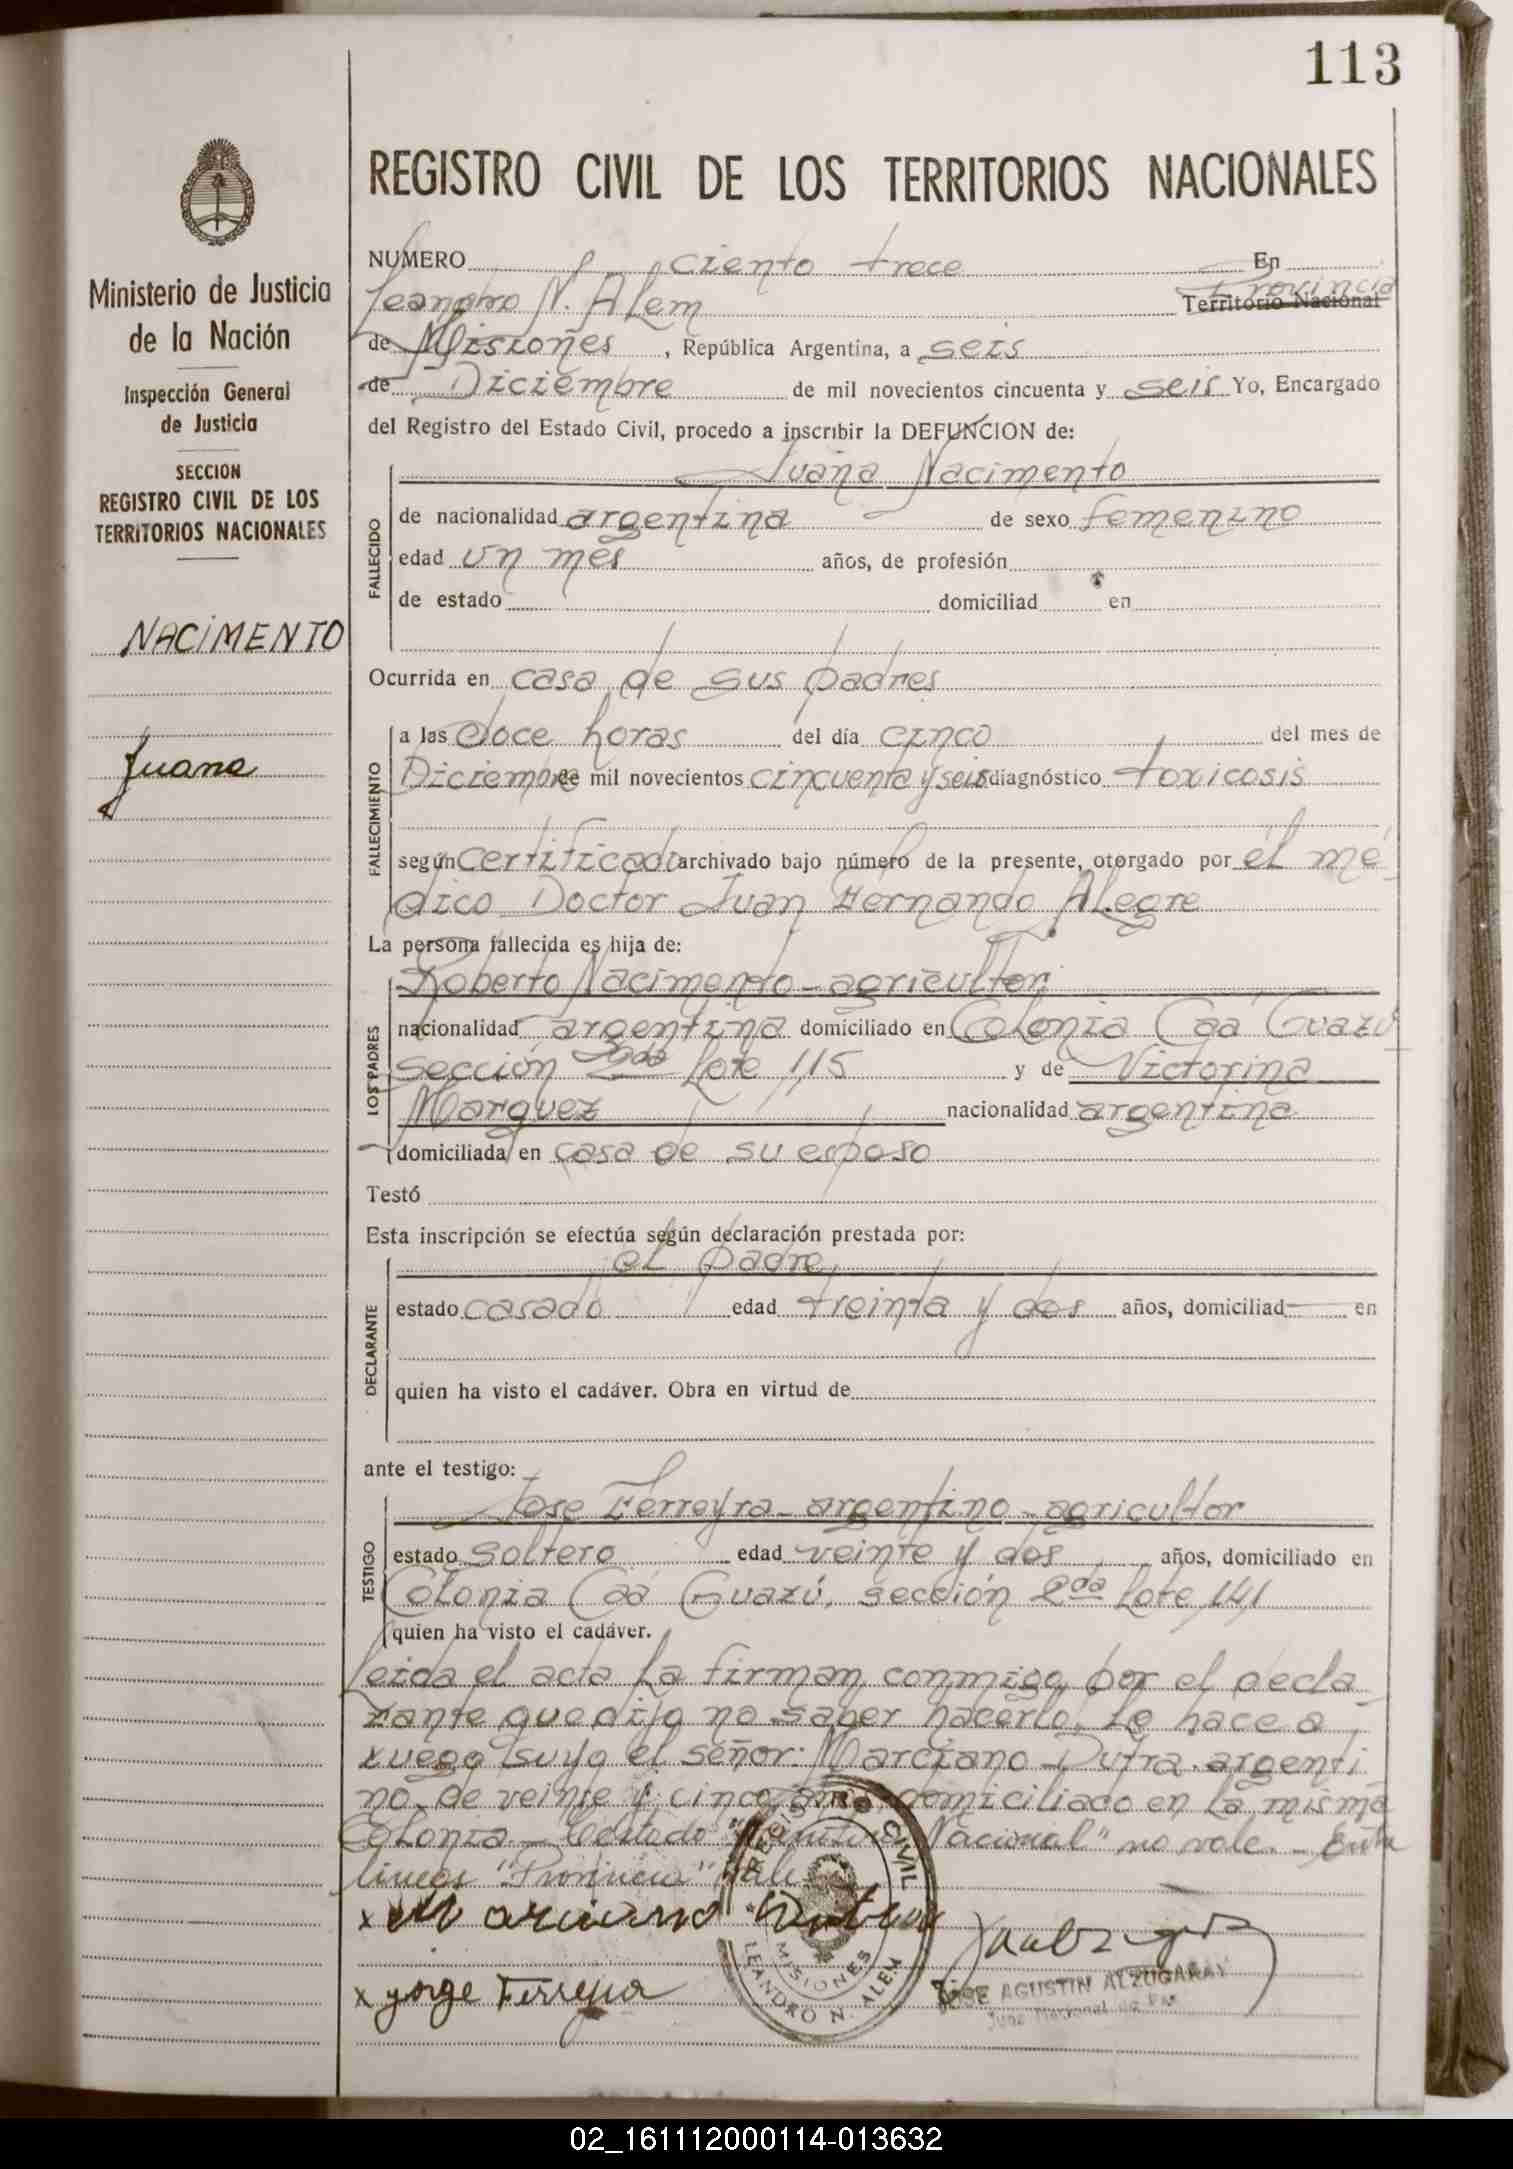 113
Ministerio de Justicia
de la Nación
Inspección General
de Justicia
SECCION
REGISTRO CIVIL DE LOS
TERRITORIOS NACIONALES
NACIMENTO
Juana
REGISTRO CIVIL DE LOS TERRITORIOS NACIONALES
NUMERO ciento trece En
Leandro N. Alem Provincia Territorio Nacional
de Misiones, República Argentina, a seis
de Diciembre de mil novecientos cincuenta y seis Yo, Encargado
del Registro del Estado Civil, procedo a inscribir la DEFUNCION de:
Juana Nacimento
FALLECIDO
de nacionalidad argentina de sexo femenino
edad un mes años, de profesión
de estado domiciliad en
Ocurrida en casa de sus padres
FALLECIMIENTO
a las doce horas del día cinco del mes de
Diciembre de mil novecientos cincuenta y seis diagnóstico toxicosis
según certificado archivado bajo número de la presente, otorgado por él mé-
dico Doctor Juan Fernando Alegre
La persona fallecida es hija de:
LOS PADRES
Roberto Nacimento - agricultor
nacionalidad argentina domiciliado en Colonia Caá Guazú
sección 2da Lote 115 y de Victorina
Marquez nacionalidad argentina
domiciliada en casa de su esposo
Testó
Esta inscripción se efectúa según declaración prestada por:
el padre
DECLARANTE
estado casado edad treinta y dos años, domiciliad en
quien ha visto el cadáver. Obra en virtud de
ante el testigo:
Jose Ferreyra - argentino - agricultor
TESTIGO
estado soltero edad veinte y dos años, domiciliado en
Colonia Caá Guazú, sección 2da Lote 141
quien ha visto el cadáver.
Leida el acta la firman conmigo, por el decla-
rante que dijo no saber hacerlo, lo hace a
ruego suyo el señor: Marciano Dutra - argenti
no de veinte y cinco años domiciliado en la misma
Colonia - Testado "Territorio Nacional" no vale. - Entre
lineas "Provincia" vale
x Marciano Dutra
x Jorge Ferreyra
REGISTRO CIVIL
MISIONES
LEANDRO N. ALEM
JOSE AGUSTIN ALZUGARAY
Juez Nacional de Paz
02_161112000114-013632